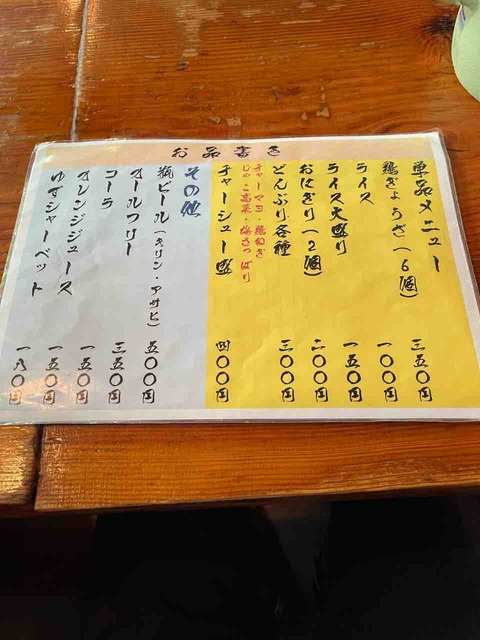 お品書き
単品メニュー
鶏ぎょうざ(6個) 三五〇円
ライス 一〇〇円
ライス大盛り 一五〇円
おにぎり(2個) 二〇〇円
どんぶり各種 三〇〇円
チャーマヨ・鶏ねぎ
じゃこ高菜・梅さっぱり
チャーシュー盛 四〇〇円
その他
瓶ビール(キリン・アサヒ) 五〇〇円
オールフリー 三五〇円
コーラ 一五〇円
オレンジジュース 一五〇円
ゆずシャーベット 一八〇円